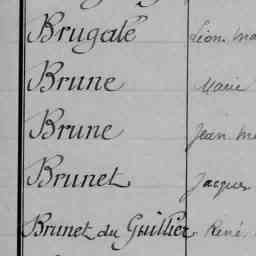 Brugalé Léon Ma
Brune Marie
Brune Jean Ma
Brunet Jacques
Brunet du Guillier René